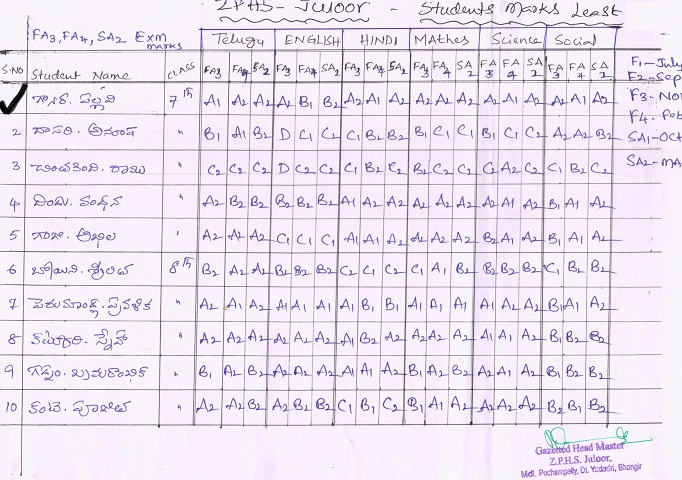 ZPHS- Juloor - Students Marks Least
FA3, FA4, SA2 Exm marks
Telugu ENGLISH HINDI MAthes Science Social
S.NO Student Name CLASS FA3 FA4 SA2 FA3 FA4 SA2 FA3 FA4 SA2 FA3 FA4 SA2 FA3 FA4 SA2 FA3 FA4 SA2
F1-July
F2-Sep
F3-Nov
F4-Feb
SA1-Oct
SA2-MA
పల్లవి 7th A1 A2 A2 A2 B1 B2 A2 A1 A2 A2 A2 A2 A2 A1 A2 A2 A1 A2
2 దాసరి. అనూష " B1 A1 B2 D C1 C2 C1 B2 B2 B1 C1 C1 B1 C1 C2 A2 A2 B2
3 రాజు " C2 C2 C2 D C2 C2 C1 B2 C2 B2 C2 C2 C2 A2 C2 C1 B2 C2
4 వందన A2 B2 B2 B2 B2 B2 A1 A2 A2 A2 A2 A2 A2 A1 A2 B1 A1 A2
5 గంజి. అఖిల ' A2 A2 A2 C1 C1 C1 A1 A1 A2 A2 A2 A2 B2 A1 A2 B1 A1 A2
6 బోయిని. శ్రీలత 8th B2 A2 A2 B2 B2 B2 C2 C1 C2 C1 A1 B2 B2 B2 B2 C1 B2 B2
7 " A2 A1 A2 A1 A1 A1 A1 B1 B1 A1 A1 A1 A1 A2 A2 B1 A1 A2
8 స్నేహ " A2 A2 A2 A2 A2 A2 A1 B2 A2 A2 A2 A2 A1 A1 A2 B2 B2 B2
9 గడ్డం. భ్రమరాంభిక " B1 A2 B2 A2 A2 A2 A1 A1 A2 A1 A2 B2 A2 A1 A2 B1 B2 B2
10 కంటె. పూజిత " A2 A2 B2 A2 B2 B2 C1 B1 C2 B1 A1 A2 A2 A2 A2 B2 B1 B2
Gazetted Head Master
Z.P.H.S. Juloor,
Mdl. Pochampally, Dt. Yadadri, Bhongir